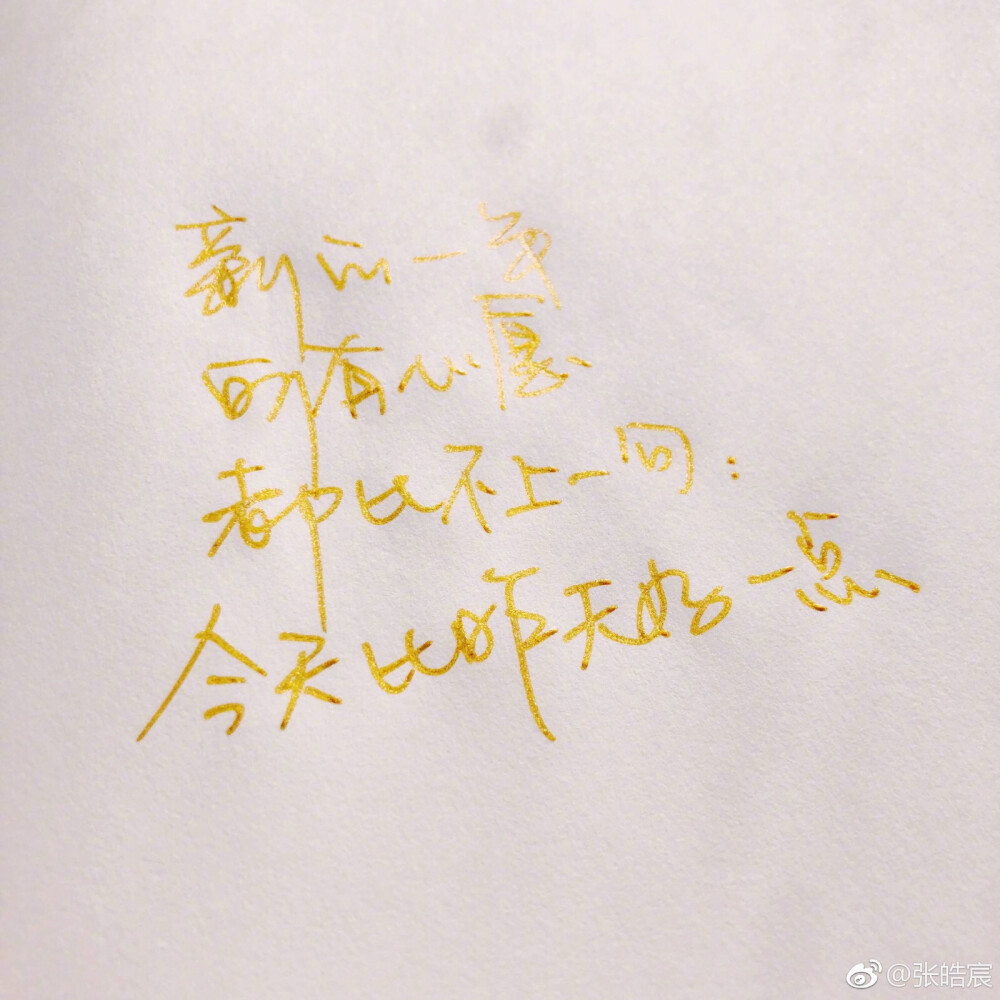 新的一年
所有心愿
都比不上一句:
今天比昨天好一点
@张皓宸